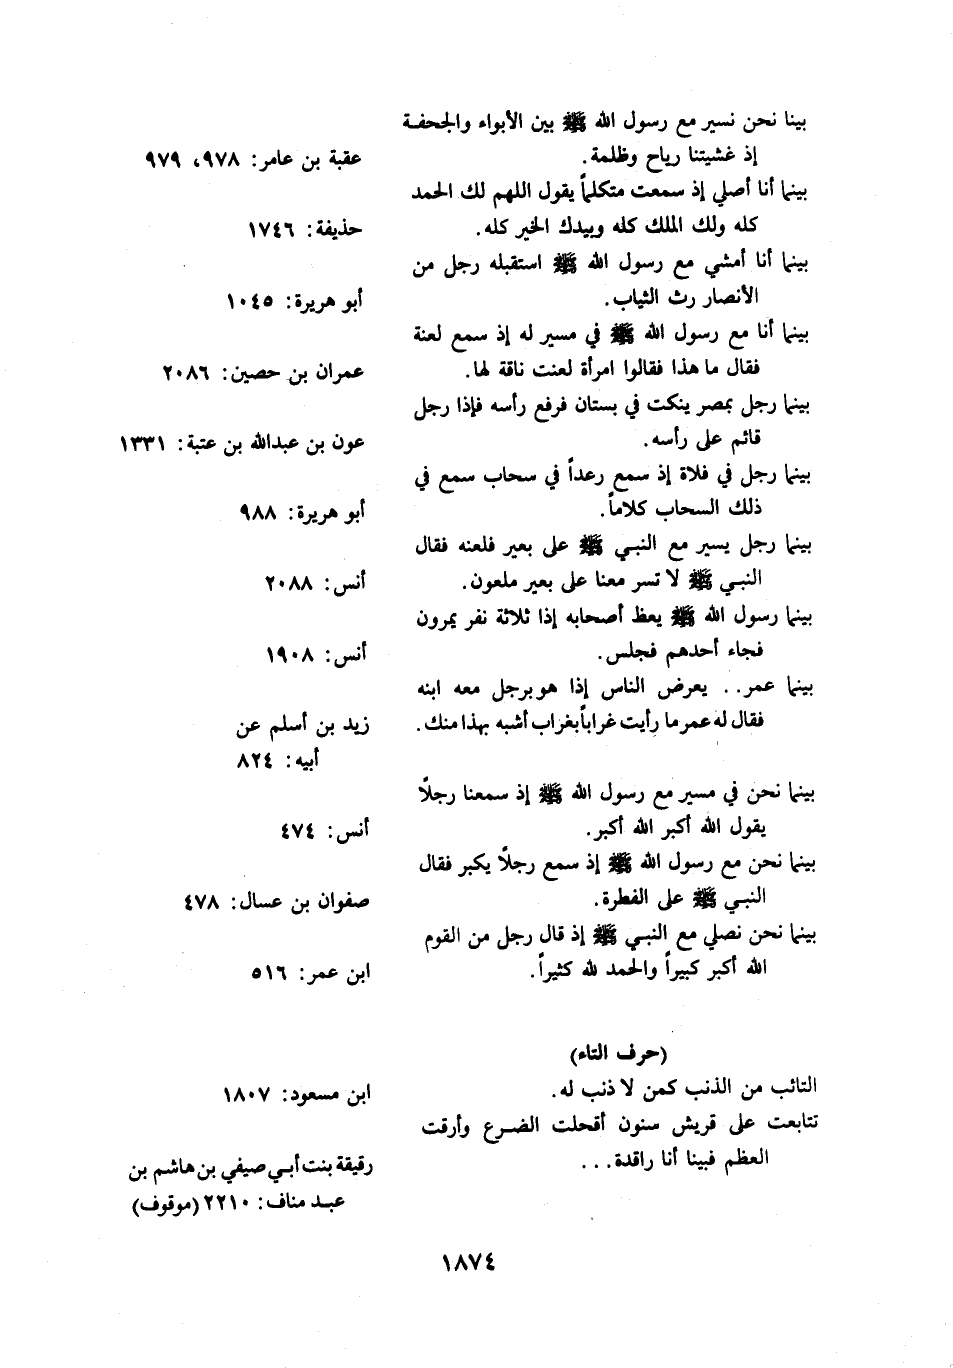 بينا نحن نسير مع رسول الله ﷺ بين الأبواء والجحفة
إذ غشيتنا رياح وظلمة. عقبة بن عامر: ٩٧٨، ٩٧٩
بينما أنا أصلي إذ سمعت متكلماً يقول اللهم لك الحمد
كله ولك الملك كله وبيدك الخير كله. حذيفة: ١٧٤٦
بينما أنا أمشي مع رسول الله ﷺ استقبله رجل من
الأنصار رث الثياب. أبو هريرة: ١٠٤٥
بينما أنا مع رسول الله ﷺ في مسير له إذ سمع لعنة
فقال ما هذا فقالوا امرأة لعنت ناقة لها. عمران بن حصين: ٢٠٨٦
بينما رجل بمصر ينكت في بستان فرفع رأسه فإذا رجل
قائم على رأسه. عون بن عبدالله بن عتبة: ١٣٣١
بينما رجل في فلاة إذ سمع رعداً في سحاب سمع في
ذلك السحاب كلاماً. أبو هريرة: ٩٨٨
بينما رجل يسير مع النبي ﷺ على بعير فلعنه فقال
النبي ﷺ لا تسر معنا على بعير ملعون. أنس: ٢٠٨٨
بينما رسول الله ﷺ يعظ أصحابه إذا ثلاثة نفر يمرون
فجاء أحدهم فجلس. أنس: ١٩٠٨
بينما عمر.. يعرض الناس إذا هو برجل معه ابنه
فقال له عمر ما رأيت غراباً بغراب أشبه بهذا منك. زيد بن أسلم عن
أبيه: ٨٢٤
بينما نحن في مسير مع رسول الله ﷺ إذ سمعنا رجلًا
يقول الله أكبر الله أكبر. أنس: ٤٧٤
بينما نحن مع رسول الله ﷺ إذ سمع رجلًا يكبر فقال
النبي ﷺ على الفطرة. صفوان بن عسال: ٤٧٨
بينما نحن نصلي مع النبي ﷺ إذ قال رجل من القوم
الله أكبر كبيراً والحمد لله كثيراً. ابن عمر: ٥١٦
(حرف التاء)
التائب من الذنب كمن لا ذنب له. ابن مسعود: ١٨٠٧
تتابعت على قريش سنون أقحلت الضرع وأرقت
العظم فبينا أنا راقدة... رقيقة بنت أبي صيفي بن هاشم بن
عبد مناف: ٢٢١٠ (موقوف)
١٨٧٤